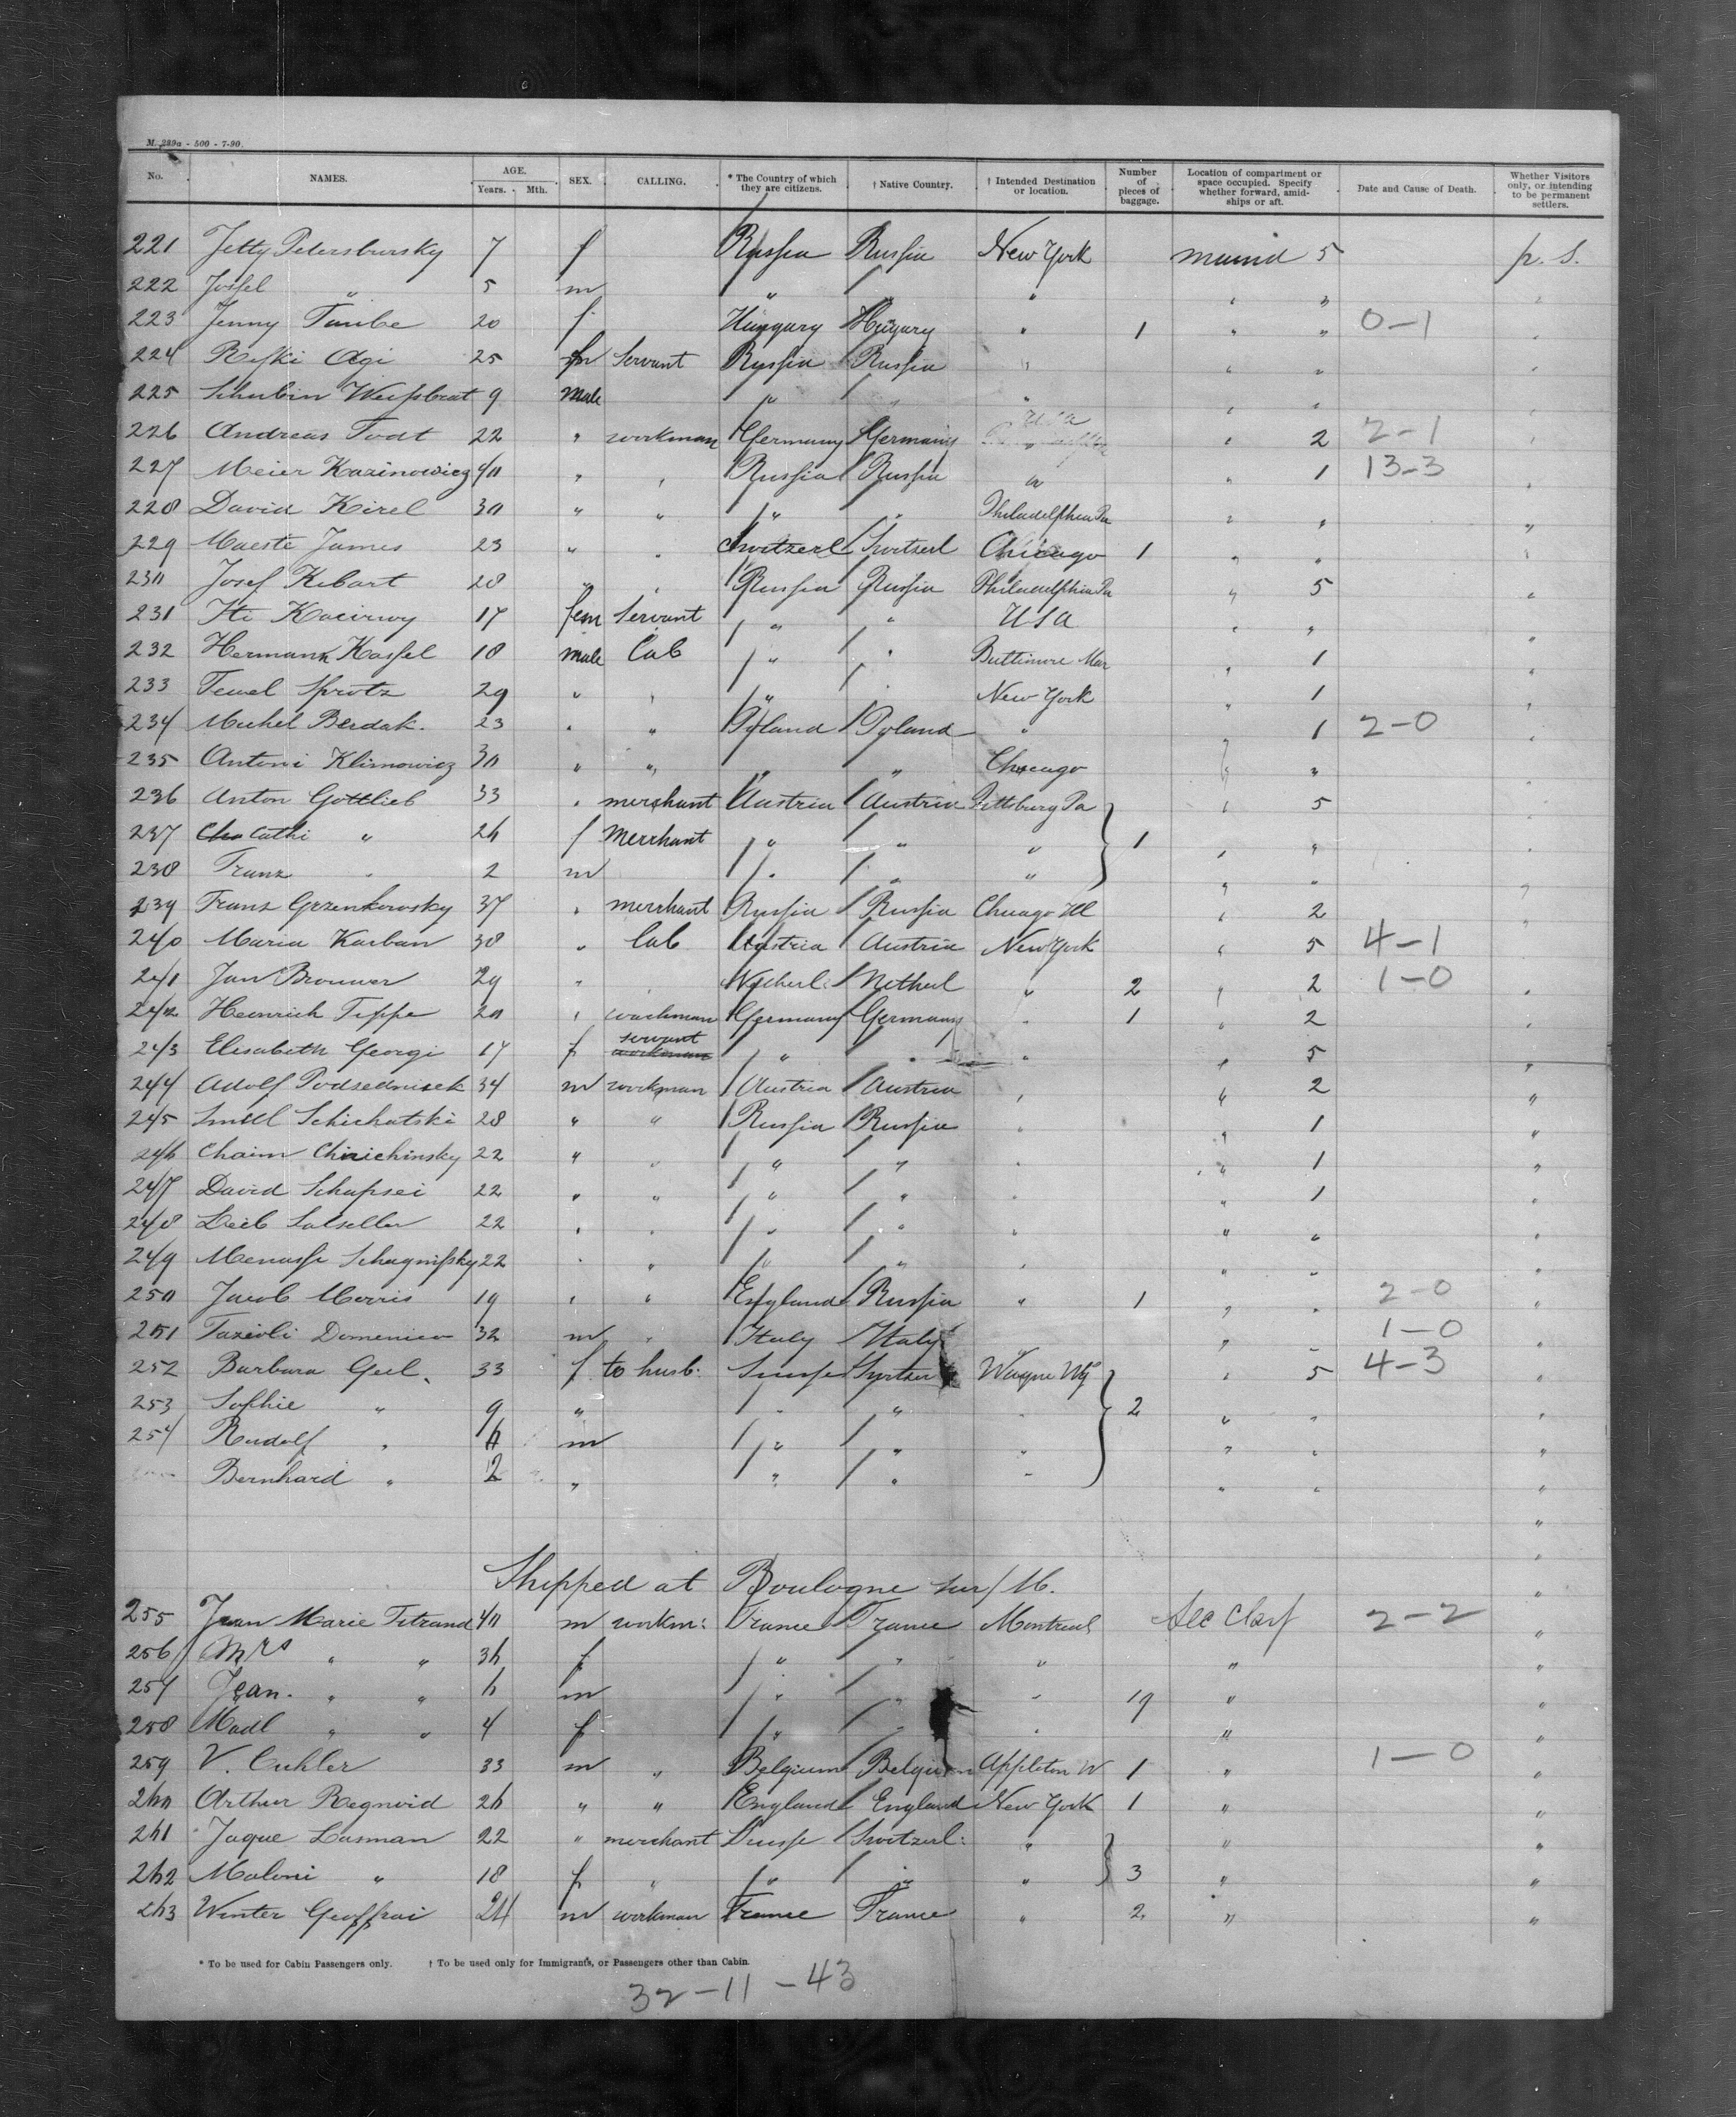 M. 289a - 500 - 7-90.
No. NAMES. AGE. Years. Mth. SEX. CALLING. * The Country of which they are citizens. † Native Country. † Intended Destination or location. Number of pieces of baggage. Location of compartment or space occupied. Specify whether forward, amid-ships or aft. Date and Cause of Death. Whether Visitors only, or intending to be permanent settlers.
221 Jetty Petersbursky 7 f Russia Russia New York 5 p. S.
222 Jossel " 5 m " " "
223 Jenny Taube 20 f Hungary Hungary " 1 " " 0-1
224 Refki Agi 25 fm Servant Russia Russia " " "
225 Schubin Weissbrat 9 male " " " " "
226 Andreas Todt 22 " workman Germany Germany USA " 2 2-1
227 Meier Kazinowicz 40 " " Russia Russia " " 1 13-3
228 David Kirel 30 " " " " Philadelphia Pa " "
229 Maeste James 23 " " Switzerl Switzerl Chicago 1 " "
230 Josef Kebart 28 " " Russia Russia Philadelphia Pa " 5
231 Iti 17 fem Servant " " USA " "
232 Hermann Kassel 18 male Lab " " Baltimore Mar " 1
233 Tewel Sprotz 29 " " " " New York " 1
234 Michel Berdak. 23 " " Poland Poland " " 1 2-0
235 Antoni Klimowicz 30 " " " " Chicago " "
236 Anton Gottlieb 33 " merchant Austria Austria Pittsburg Pa " 5
237 Cathi " 26 f Merchant " " " 1 " "
238 Franz " 2 m " " " " "
239 Franz Grzenkowsky 37 " merchant Russia Russia Chicago Ill " 2
240 Maria Karban 38 " Lab Austria Austria New York " 5 4-1
241 Jan Brouwer 29 " " Netherl: Netherl " 2 " 2 1-0
242 Heinrich Teppe 20 " workman Germany Germany " 1 " 2
243 Elisabeth Georgi 17 f servant workman " " " " 5
244 Adolf Podsednisek 34 m workman Austria Austria " " 2
245 Schichatski 28 " " Russia Russia " " 1
246 Chaim Chirichinsky 22 " " " " " " 1
247 David Schapsei 22 " " " " " " 1
248 Leib Salseller 22 " " " " " " "
249 Menasse Schagnissky 22 " " " " " " "
250 Jacob Morris 19 " " England Russia " 1 " " 2-0
251 Tazioli Domenico 32 m " Italy Italy " " " 1-0
252 Barbara Geel. 33 f to husb: Suisse Wayne " 5 4-3
253 Sophie " 9 " " " " 2 " "
254 Rudolf " m " " " " "
Bernhard " 2 " " " " " "
Shipped at Boulogne sur/M.
255 Jean Marie Tetrand 40 m workm: France France Montreal Sec Class 2-2
256 Mrs " " 36 f " " " "
257 Jean. " " 6 m " " " 19 "
258 Madl " " 4 f " " " "
259 V. Cuhler 33 m " Belgium Belgium Appleton W 1 " 1-0
260 Arthur Regnoid 26 " " England England New York 1 "
261 Jaque Lasman 22 " merchant Suisse Switzerl: " "
262 Maloni " 18 f " " " " 3 "
263 Winter Geoffrai 24 m workman France France " 2 "
* To be used for Cabin Passengers only. † To be used only for Immigrants, or Passengers other than Cabin.
32-11-43